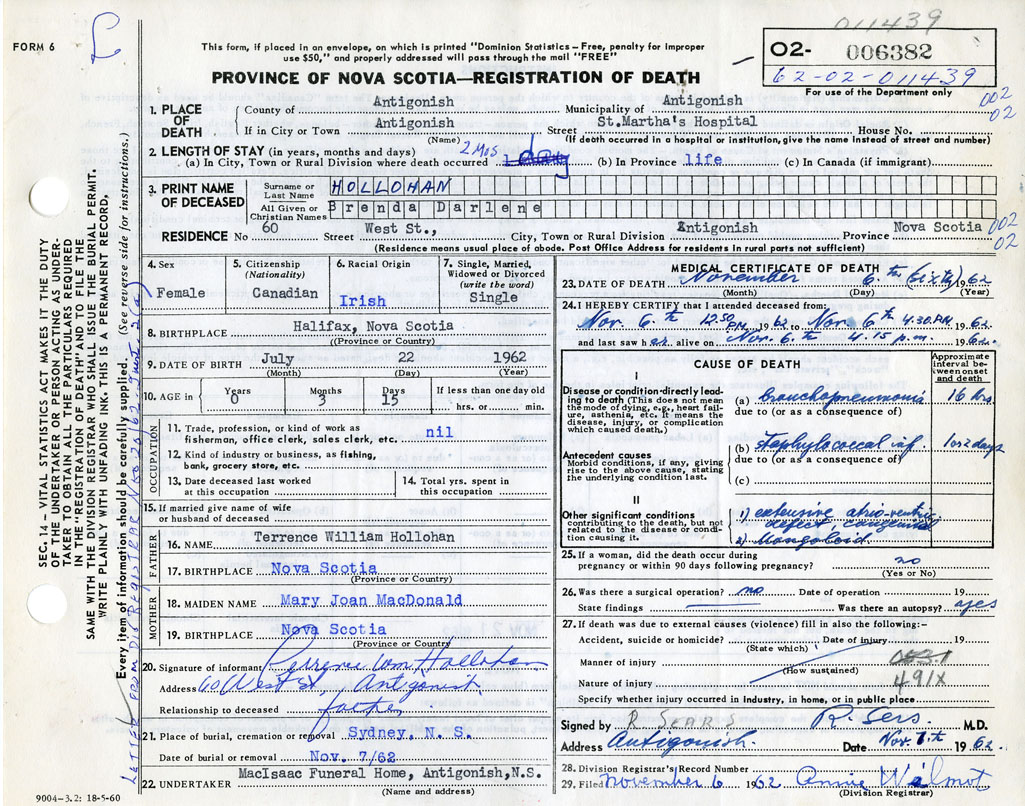 011439
FORM 6
L
This form, if placed in an envelope, on which is printed "Dominion Statistics—Free, penalty for improper
use $50," and properly addressed will pass through the mail "FREE"
O2- 006382
62-02-011439
For use of the Department only
PROVINCE OF NOVA SCOTIA—REGISTRATION OF DEATH
002
02
SEC. 14 – VITAL STATISTICS ACT MAKES IT THE DUTY
OF THE UNDERTAKER OR PERSON ACTING AS UNDER-
TAKER TO OBTAIN ALL THE PARTICULARS REQUIRED
IN THE "REGISTRATION OF DEATH" AND TO FILE THE
SAME WITH THE DIVISION REGISTRAR WHO SHALL ISSUE THE BURIAL PERMIT.
WRITE PLAINLY WITH UNFADING INK. THIS IS A PERMANENT RECORD.
Every item of information should be carefully supplied. (See reverse side for instructions.)
LETTER FROM DIV REGISTRAR Nov 20/62
1. PLACE OF DEATH
County of Antigonish Municipality of Antigonish
If in City or Town Antigonish Street St.Martha's Hospital House No.
(Name) (If death occurred in a hospital or institution, give the name instead of street and number)
2. LENGTH OF STAY (in years, months and days)
(a) In City, Town or Rural Division where death occurred 2 Mos 1 day (b) In Province life (c) In Canada (if immigrant)
3. PRINT NAME OF DECEASED
Surname or Last Name HOLLOHAN
All Given or Christian Names Brenda Darlene
RESIDENCE No 60 Street West St., City, Town or Rural Division Antigonish Province Nova Scotia 002
02
(Residence means usual place of abode. Post Office Address for residents in rural parts not sufficient)
4. Sex
Female
5. Citizenship
(Nationality)
Canadian
6. Racial Origin
Irish
7. Single, Married,
Widowed or Divorced
(write the word)
Single
8. BIRTHPLACE Halifax, Nova Scotia
(Province or Country)
9. DATE OF BIRTH July 22 1962
(Month) (Day) (Year)
10. AGE in Years 0 Months 3 Days 15 If less than one day old
hrs. or min.
OCCUPATION
11. Trade, profession, or kind of work as
fisherman, office clerk, sales clerk, etc. nil
12. Kind of industry or business, as fishing,
bank, grocery store, etc.
13. Date deceased last worked
at this occupation
14. Total yrs. spent in
this occupation
15. If married give name of wife
or husband of deceased
FATHER
16. NAME Terrence William Hollohan
17. BIRTHPLACE Nova Scotia
(Province or Country)
MOTHER
18. MAIDEN NAME Mary Joan MacDonald
19. BIRTHPLACE Nova Scotia
(Province or Country)
20. Signature of informant Terrence Wm Hollohan
Address 60 West St, Antigonish
Relationship to deceased father
21. Place of burial, cremation or removal Sydney, N. S.
Date of burial or removal Nov. 7/62
22. UNDERTAKER MacIsaac Funeral Home, Antigonish,N.S.
(Name and address)
9004–3.2: 18-5-60
MEDICAL CERTIFICATE OF DEATH
23. DATE OF DEATH November 6.th (sixth) 1962
(Month) (Day) (Year)
24. I HEREBY CERTIFY that I attended deceased from:
Nov. 6.th 12.50 P.M. 1962 to Nov. 6th 4.30 P.M. 1962.
and last saw her alive on Nov. 6.th 4.15 p.m. 1962.
CAUSE OF DEATH
Approximate
interval be-
tween onset
and death
I
Disease or condition directly lead-
ing to death (This does not mean
the mode of dying, e.g., heart fail-
ure, asthenia, etc. It means the
disease, injury, or complication
which caused death.)
(a) bronchopneumonia 16 hrs
due to (or as a consequence of)
Antecedent causes
Morbid conditions, if any, giving
rise to the above cause, stating
the underlying condition last.
(b) Staphylococcal inf 1 or 2 days
due to (or as a consequence of)
(c)
II
Other significant conditions
contributing to the death, but not
related to the disease or condi-
tion causing it.
1) extensive atrio-ventric.
defect, congenital
2) Mongoloid.
25. If a woman, did the death occur during
pregnancy or within 90 days following pregnancy? no
(Yes or No)
26. Was there a surgical operation? no Date of operation 19
State findings Was there an autopsy? yes
27. If death was due to external causes (violence) fill in also the following:–
Accident, suicide or homicide? Date of injury 19
(State which)
Manner of injury 053.1
(How sustained)
Nature of injury 491X
Specify whether injury occurred in industry, in home, or in public place
Signed by R SEARS R. Sers. M.D.
Address Antigonish. Date Nov. 7.th 1962.
28. Division Registrar's Record Number
29. Filed november 6 1962 Annie Wilmot
(Division Registrar)